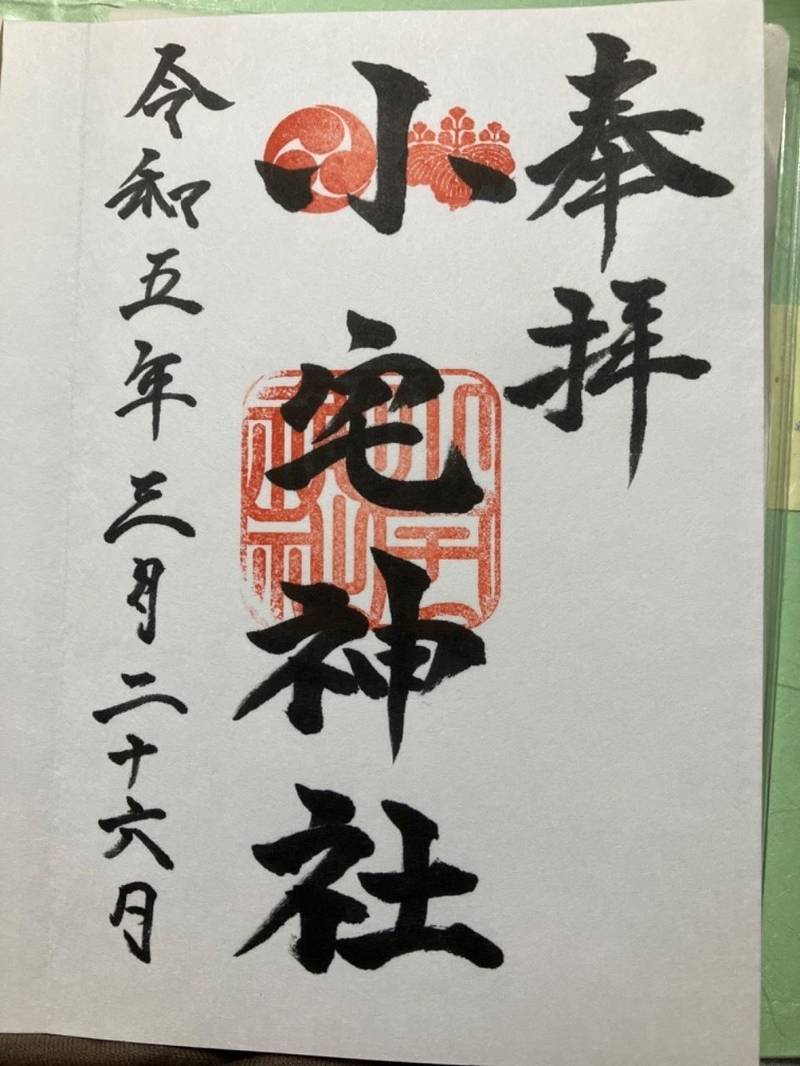 奉拝
小宅神社
小宅神社
令和五年三月二十六日